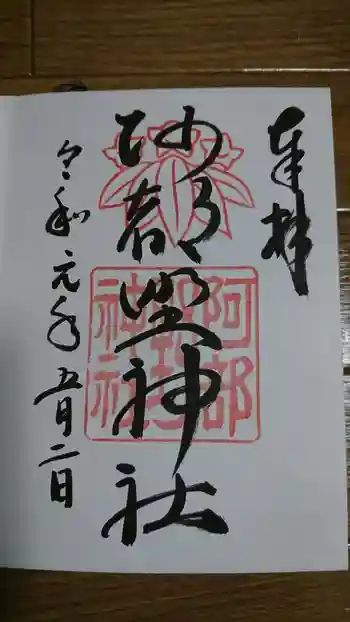 奉拝
阿部野神社
阿部野神社
令和元年五月二日